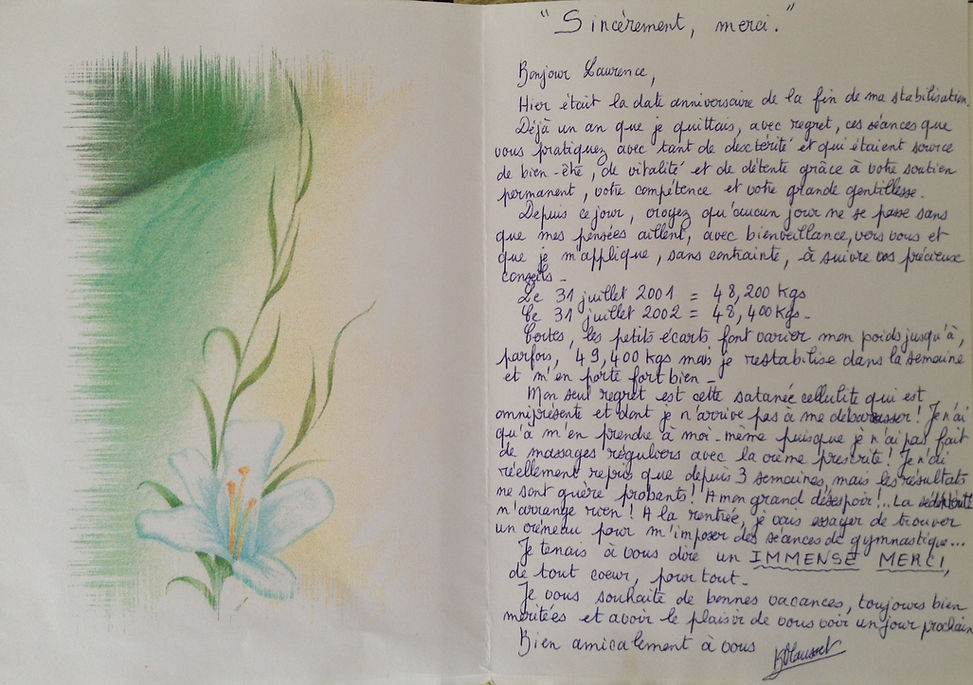 "Sincèrement, merci."
Bonjour Laurence,
Hier était la date anniversaire de la fin de ma stabilisation.
Déjà un an que je quittais, avec regret, ces séances que
vous pratiquez avec tant de dextérité et qui étaient source
de bien-être, de vitalité et de détente grâce à votre soutien
permanent, votre compétence et votre grande gentillesse.
Depuis ce jour, croyez qu'aucun jour ne se passe sans
que mes pensées aillent, avec bienveillance, vers vous et
que je m'applique, sans contrainte, à suivre vos précieux
conseils -
Le 31 juillet 2001 = 48,200 Kgs
Le 31 juillet 2002 = 48,400 Kgs -
Certes, les petits écarts font varier mon poids jusqu'à,
parfois, 49,400 kgs mais je restabilise dans la semaine
et m'en porte fort bien -
Mon seul regret est cette satanée cellulite qui est
omniprésente et dont je n'arrive pas à me débarrasser ! Je n'ai
qu'à m'en prendre à moi-même puisque je n'ai pas fait
de massages réguliers avec la crème prescrite ! Je n'ai
réellement repris que depuis 3 semaines, mais les résultats
ne sont guère probants ! A mon grand désespoir !.. La sédentarité
n'arrange rien ! A la rentrée, je vais essayer de trouver
un créneau pour m'imposer des séances de gymnastique...
Je tenais à vous dire un IMMENSE MERCI,
de tout coeur, pour tout -
Je vous souhaite de bonnes vacances, toujours bien
méritées et avoir le plaisir de vous voir un jour prochain
Bien amicalement à vous